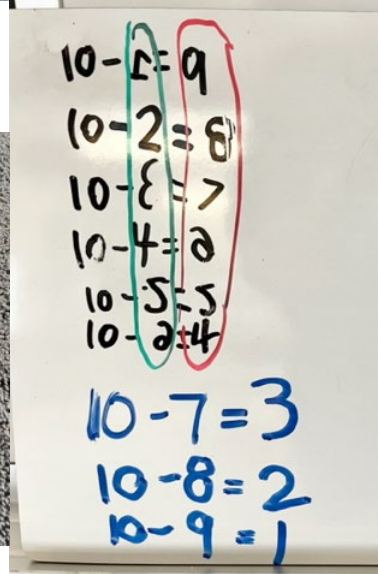 10-1=9
10-2=8
10-3=7
10-4=6
10-5=5
10-6=4
10-7=3
10-8=2
10-9=1